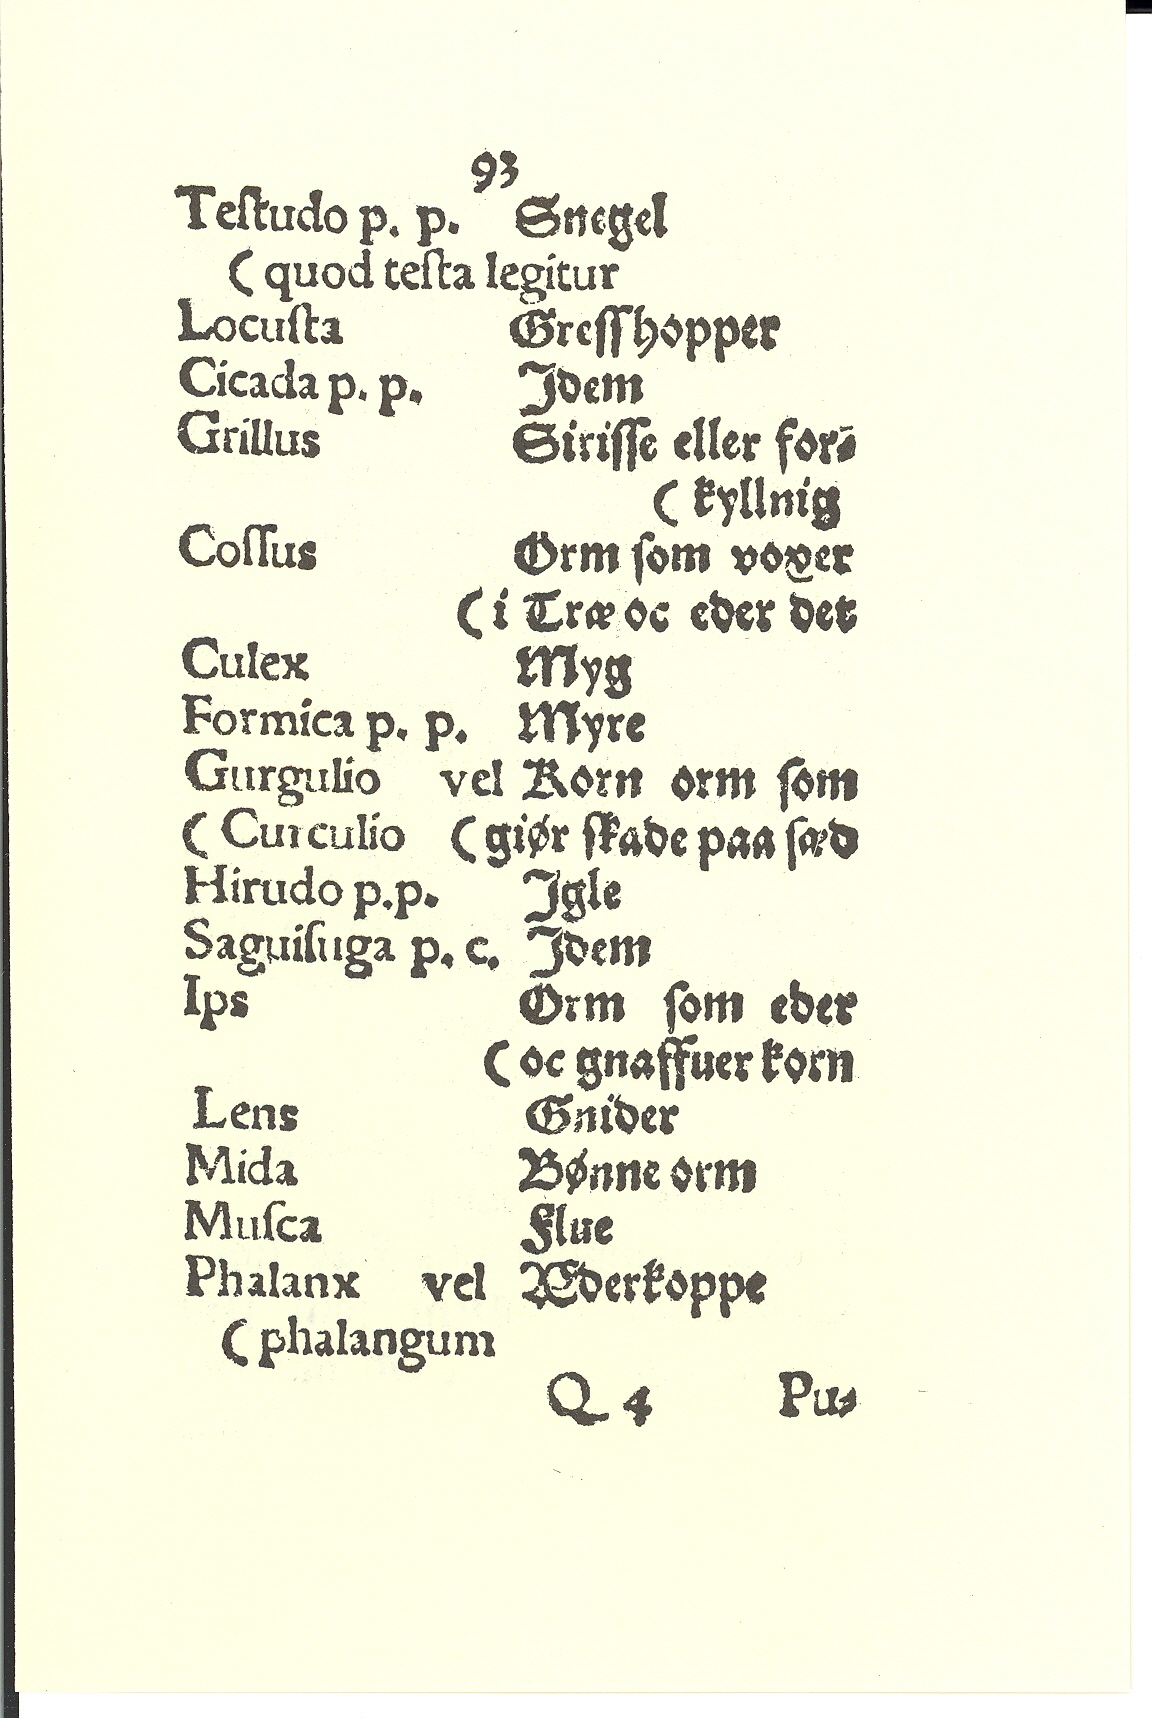 93
Teſtudo p. p. Snegel
( quod teſta legitur
Locuſta Greſſhopper
Cicada p. p. Jdem
Grillus Siriſſe eller for⸗
( kyllnig
Coſſus Orm ſom voxer
( i Træ oc eder det
Culex Myg
Formica p. p. Myre
Gurgulio vel Korn orm ſom
( Curculio ( giør ſkade paa ſæd
Hirudo p.p. Jgle
Saguiſuga p. c. Jdem
Ips Orm ſom eder
( oc gnaffuer korn
Lens Gnider
Mida Bønne orm
Muſca Flue
Phalanx vel Æderkoppe
( phalangum
Q 4 Pu⸗